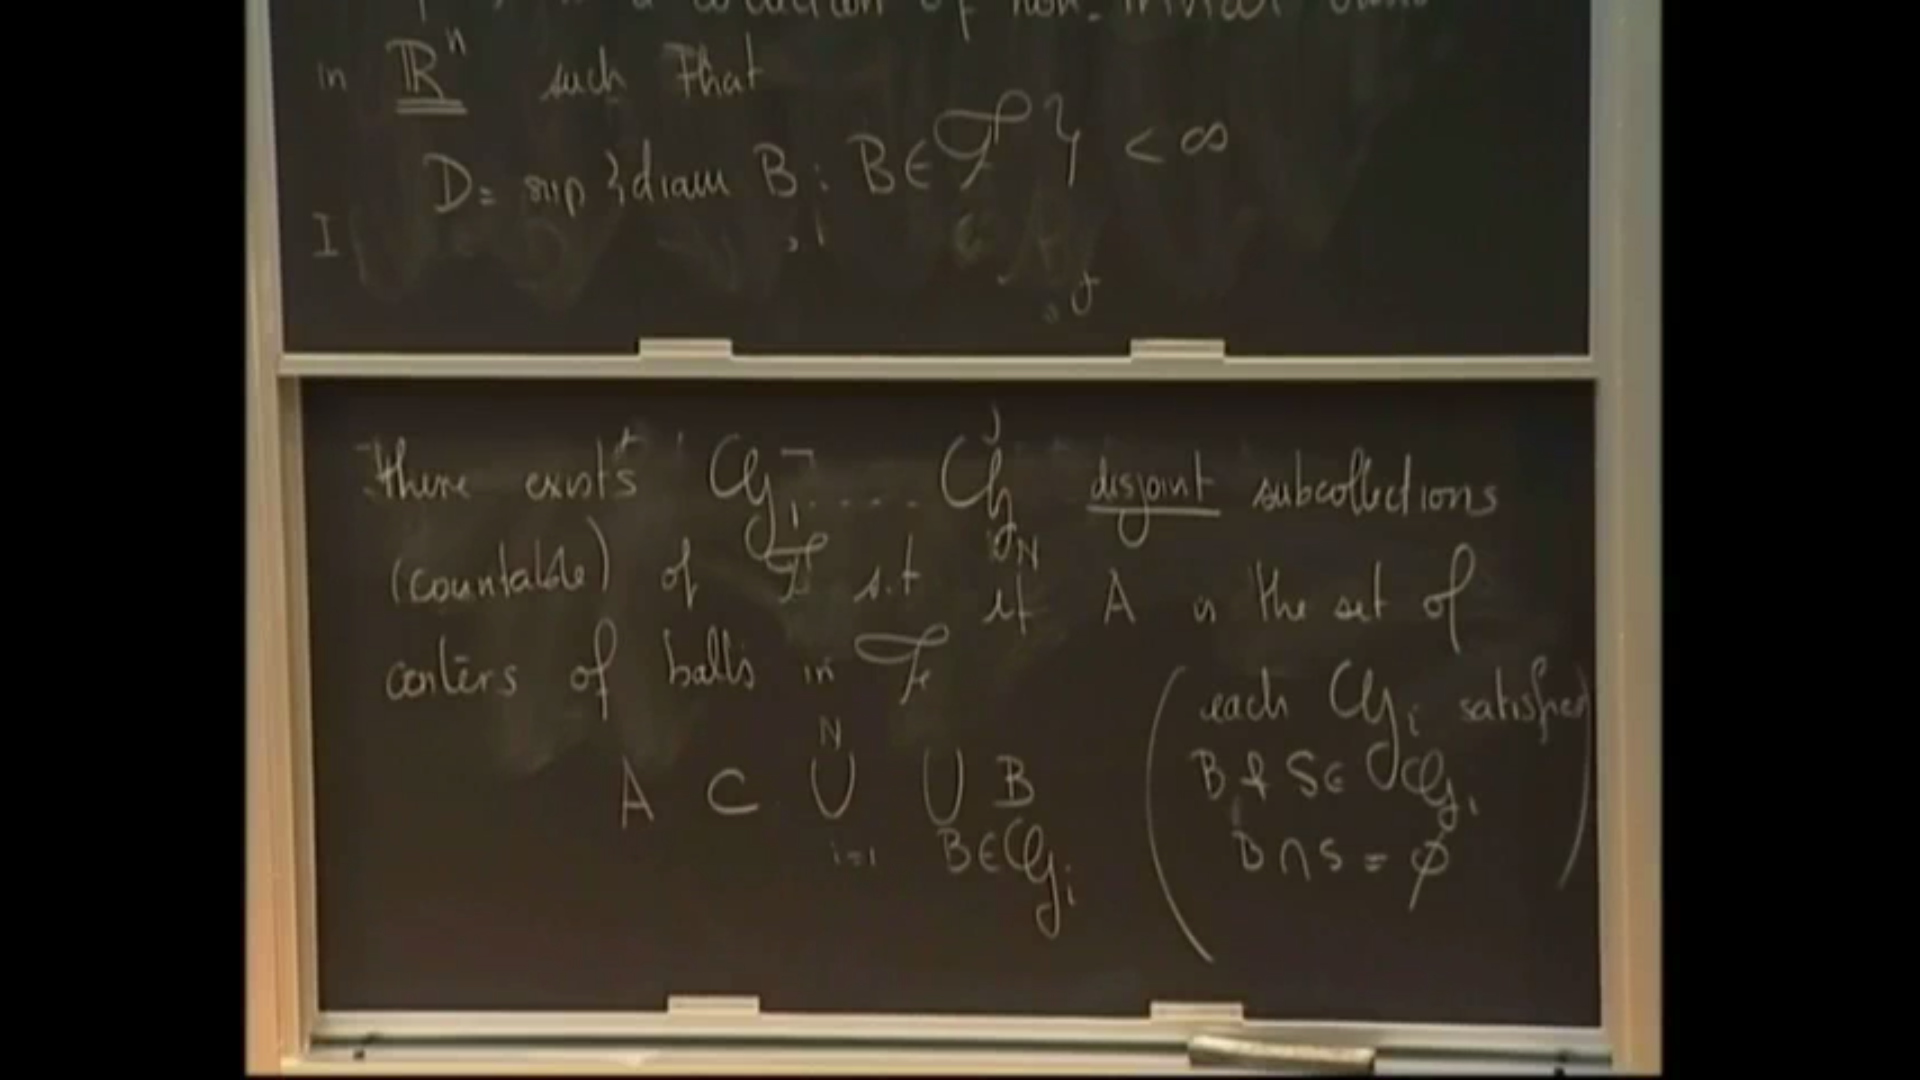 a collection of non-trivial balls
in ℝⁿ such that
D = sup {diam B : B ∈ ℱ} < ∞
I
there exists 𝒢₁ .... 𝒢_N disjoint subcollections
(countable) of ℱ s.t if A is the set of
centers of balls in ℱ
A ⊂ ⋃_{i=1}^{N} ⋃_{B∈𝒢ᵢ} B
(each 𝒢ᵢ satisfies
B & S ∈ 𝒢ᵢ
B ∩ S = ∅)